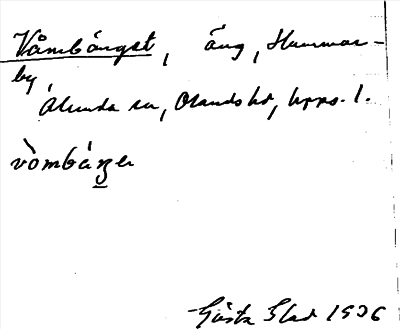 Våmbängst, äng, Hammar-
by
Alunda sn, Olands hd, Upps. l.
vòmbáŋen
Gösta Blad 1936